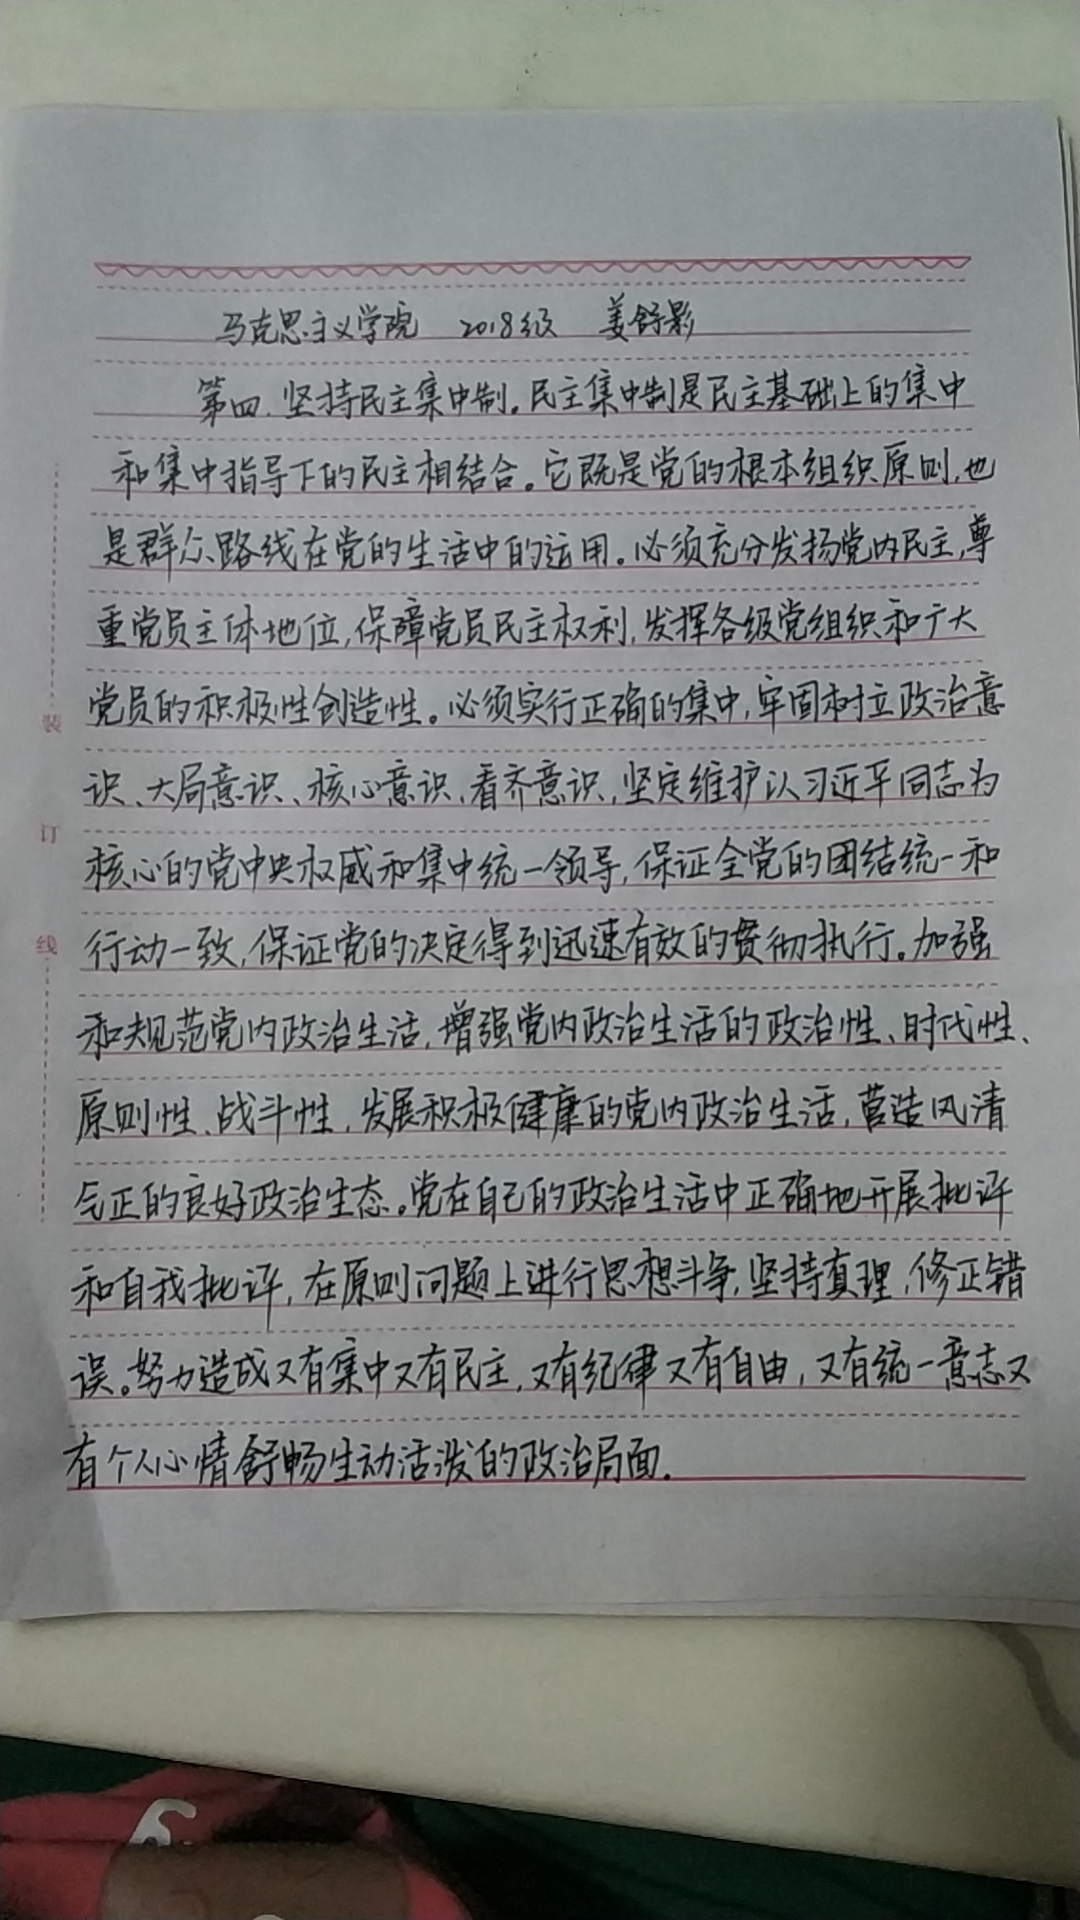 马克思主义学院 2018级 姜舒影
第四.坚持民主集中制。民主集中制是民主基础上的集中
和集中指导下的民主相结合。它既是党的根本组织原则,也
是群众路线在党的生活中的运用。必须充分发扬党内民主,尊
重党员主体地位,保障党员民主权利,发挥各级党组织和广大
党员的积极性创造性。必须实行正确的集中,牢固树立政治意
识、大局意识、核心意识、看齐意识,坚定维护以习近平同志为
核心的党中央权威和集中统一领导,保证全党的团结统一和
行动一致,保证党的决定得到迅速有效的贯彻执行。加强
和规范党内政治生活,增强党内政治生活的政治性、时代性、
原则性、战斗性,发展积极健康的党内政治生活,营造风清
气正的良好政治生态。党在自己的政治生活中正确地开展批评
和自我批评,在原则问题上进行思想斗争,坚持真理,修正错
误。努力造成又有集中又有民主,又有纪律又有自由,又有统一意志又
有个人心情舒畅生动活泼的政治局面.
装
订
线